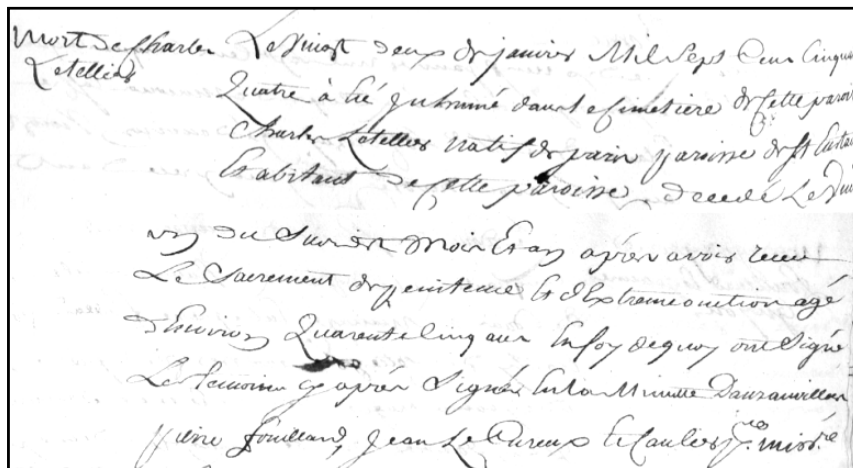 Mort de Charles
Letellier
Le vingt deux de janvier Mil Sept Cent Cinqua
Quatre à été Inhumé dans le Cimetiere de Cette paroi
Charles Letellier natif de paris paroisse de St Eusta
habitant de Cette paroisse decedé Le vin
un du Susdit Mois Et an après avoir recu
Le Sacrement de penitence Et d'Extreme onction agé
d'Environ Quarente Cinq ans En foy de quoy ont Signé
Les temoins cy après Signés En la Minutte
pierre fouillard, Jean Le Cureux miss.re